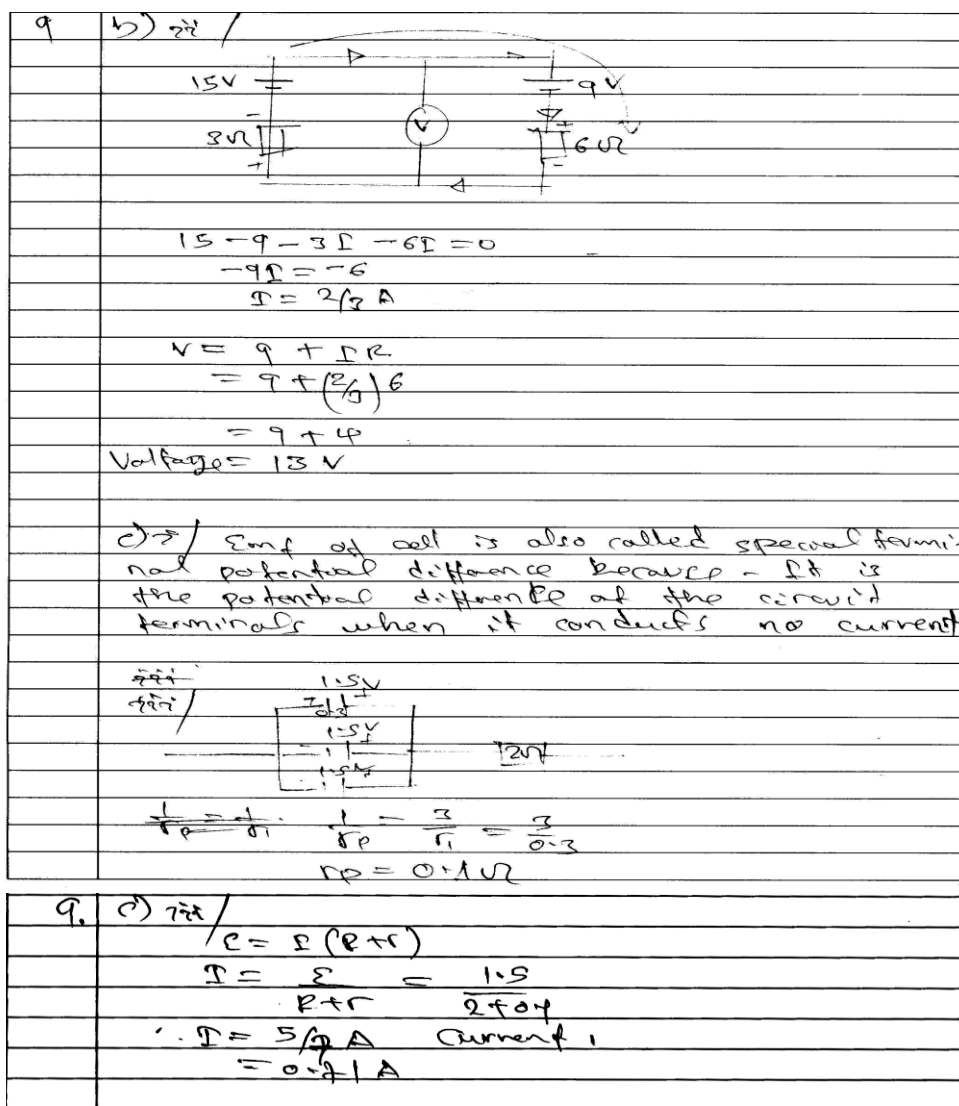 9 b) ii/
15V
9V
3Ω
V
6Ω
- + + -
15 - 9 - 3I - 6I = 0
-9I = -6
I = 2/3 A
V = 9 + IR
= 9 + (2/3) 6
= 9 + 4
Voltage = 13 V
c) i/ Emf of cell is also called special termi-
nal potential difference because - It is
the potential difference of the circuit
terminals when it conducts no current
iii
iii/
1.5V
0.3
1.5V
1.5V
2Ω
1/rp = 1/r1 1/rp = 3/r1 = 3/0.3
rp = 0.1Ω
9. c) iii/
ε = I (R+r)
I = ε/(R+r) = 1.5/(2+0.1)
∴ I = 5/7 A Current,
= 0.71 A